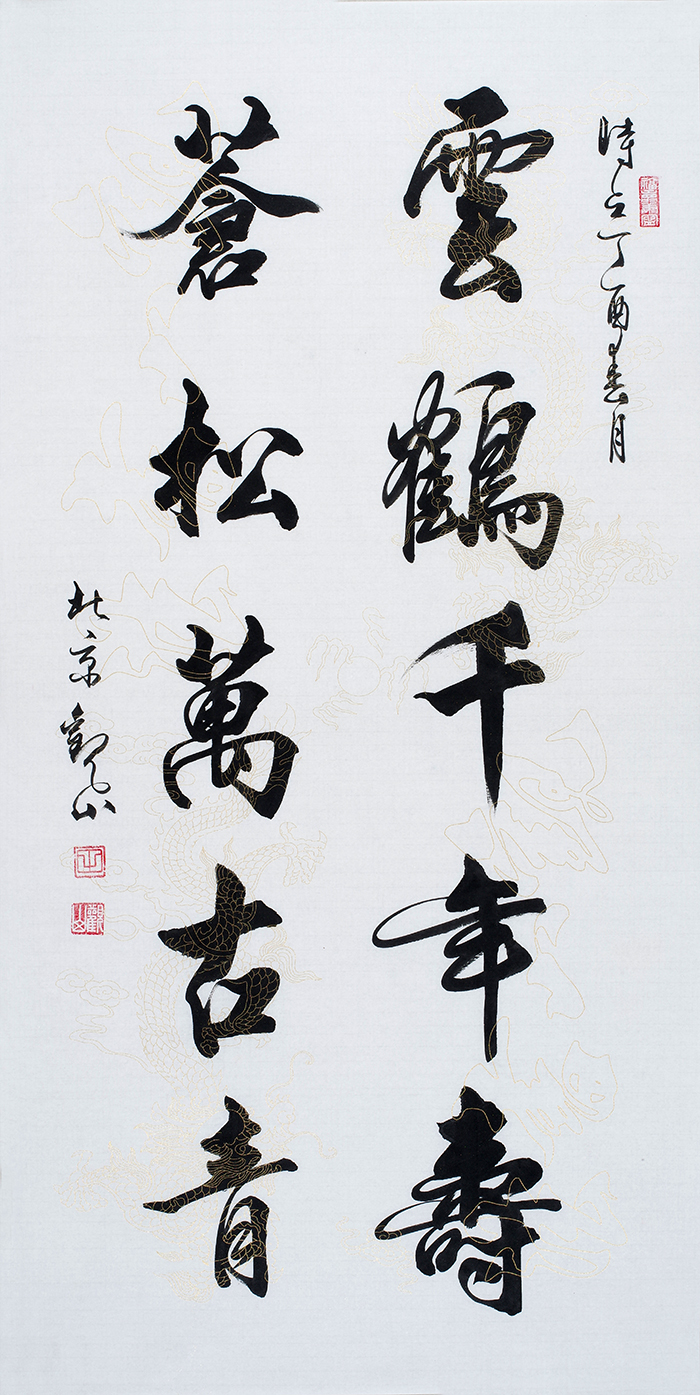 時在丁酉春月
雲鶴千年壽
蒼松萬古青
北京觀山
觀山